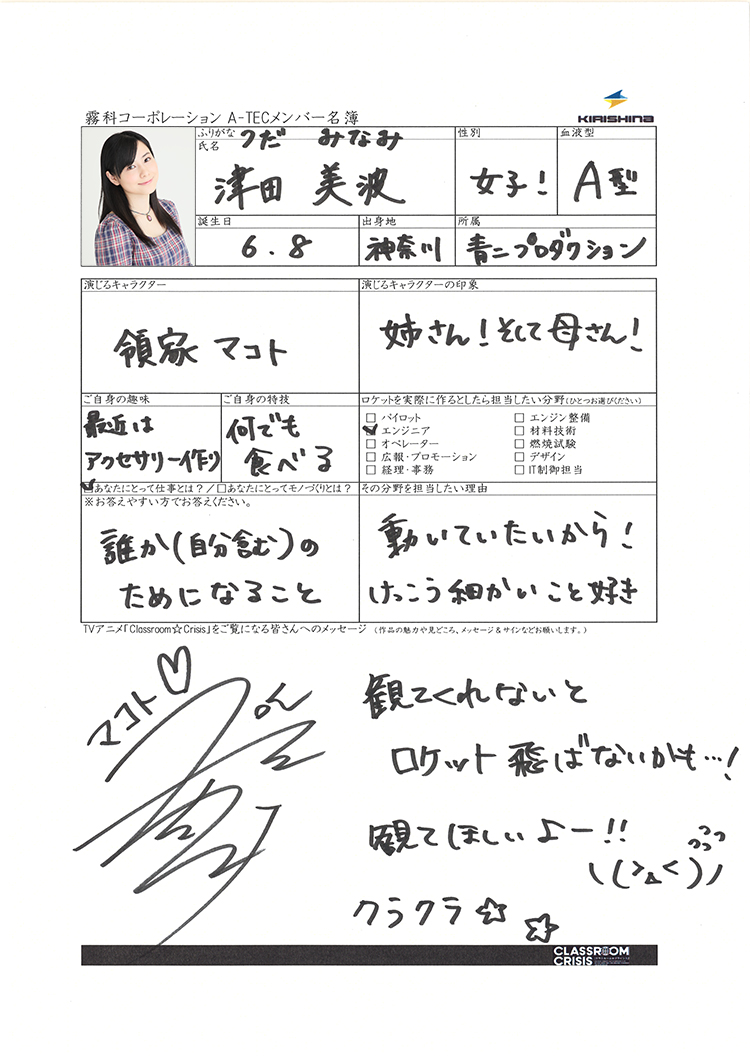 KIRISHINA
霧科コーポレーション A-TECメンバー名簿
ふりがな つだ みなみ
氏名 津田 美波
性別 女子!
血液型 A型
誕生日 6.8
出身地 神奈川
所属 青二プロダクション
演じるキャラクター
領家 マコト
演じるキャラクターの印象
姉さん!そして母さん!
ご自身の趣味
最近は
アクセサリー作り
ご自身の特技
何でも
食べる
ロケットを実際に作るとしたら担当したい分野(ひとつお選びください)
□ パイロット
□ エンジニア
□ オペレーター
□ 広報・プロモーション
□ 経理・事務
□ エンジン整備
□ 材料技術
□ 燃焼試験
□ デザイン
□ IT制御担当
□あなたにとって仕事とは?/□あなたにとってモノづくりとは?
※お答えやすい方でお答えください。
誰か(自分含む)の
ためになること
その分野を担当したい理由
動いていたいから!
けっこう細かいこと好き
TVアニメ「Classroom☆Crisis」をご覧になる皆さんへのメッセージ (作品の魅力や見どころ、メッセージ&サインなどお願いします。)
マコト♡
観てくれないと
ロケット飛ばないかも…!
観てほしいよー!!
\(>△<)ノ
クラクラ☆ ☆
CLASSROOM
CRISIS